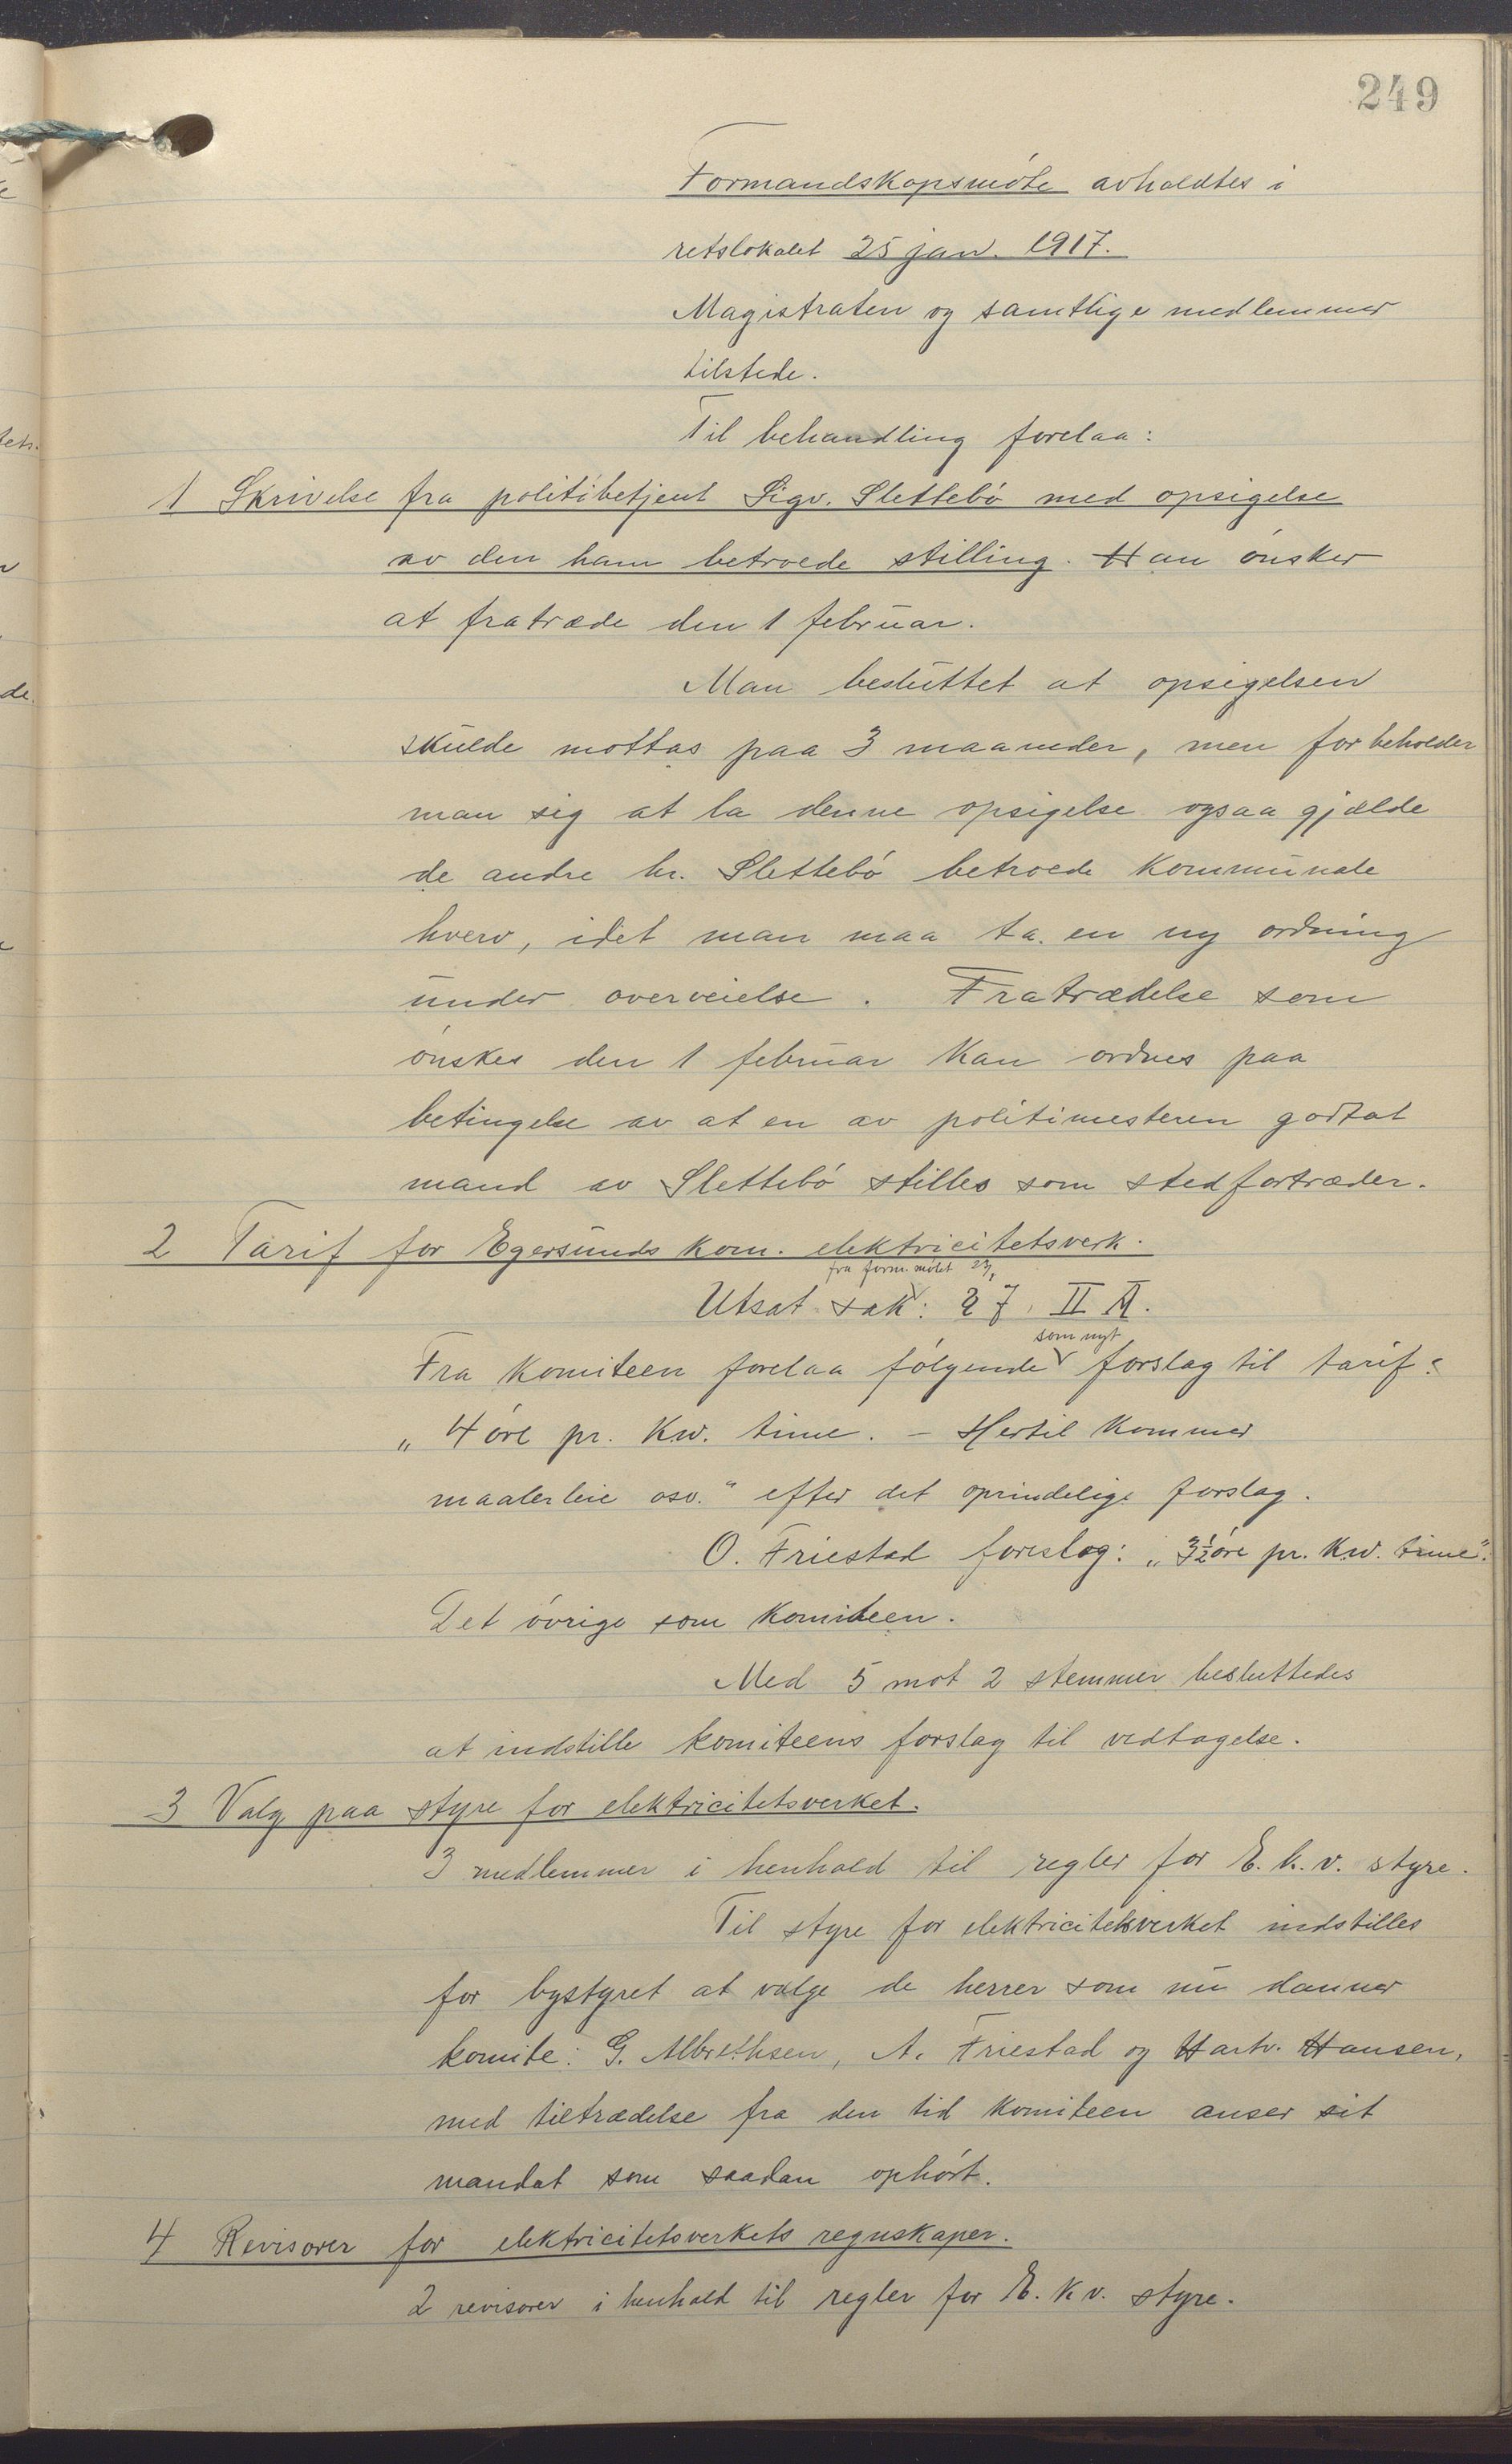 249
Formandskapsmöte avholdtes i
retslokalet 25 jan. 1917.
Magistraten og samtlige medlemmer
tilstede.
Til behandling forelaa:
1 Skrivelse fra politibetjent Sigv. Slettebö med opsigelse
av den ham betroede stilling. Han önsker
at fratræde den 1 februar.
Man besluttet at opsigelsen
skulde mottas paa 3 maaneder, men forbeholder
man sig at la denne opsigelse ogsaa gjælde
de andre hr. Slettebö betroede kommunale
hverv, idet man maa ta en ny ordning
under overveielse. Fratrædelse som
önskes den 1 februar kan ordnes paa
betingelse av at en av politimesteren godtat
mand av Slettebö stilles som stedfortræder.
2 Tarif for Egersunds kom. elektricitetsverk.
fra form. mötet 23/1
Utsat sak: 27. II A.
som nyt
Fra komiteen forelaa fölgende forslag til tarif:
„4 öre pr. Kw. time. – Hertil kommer
maalerleie osv." efter det oprindelige forslag.
O. Friestad foreslog: „3½ öre pr. Kw. time".
Det övrige som komiteen.
Med 5 mot 2 stemmer besluttedes
at indstille komiteens forslag til vedtagelse.
3 Valg paa styre for elektricitetsverket.
3 medlemmer i henhold til regler for E. k. v. styre.
Til styre for elektricitetsverket indstilles
for bystyret at vælge de herrer som nu danner
komite: G. Albrethsen, A. Friestad og Hartv. Hansen,
med tiltrædelse fra den tid komiteen anser sit
mandat som saadan ophört.
4 Revisorer for elektricitetsverkets regnskaper.
2 revisorer i henhold til regler for E. k v. styre.